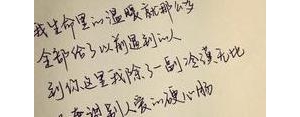 我生命里的温暖就那么多
全部给了以前遇到的人
到你这里我除了一副冷漠无比
别人爱的硬心肠